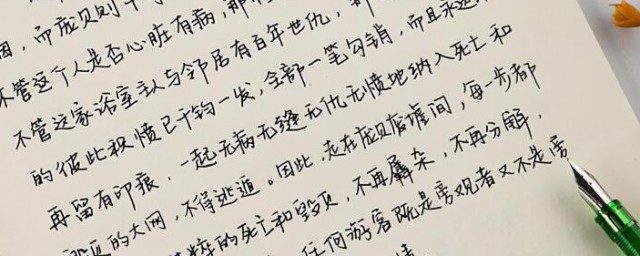 因，而庞贝则
不管这个人是否心脏有病，那
不管这家浴室主人与邻居有百年世仇，
的彼此积愤已千钧一发，全部一笔勾销，而且永远
再留有印痕，一起无病无缝无仇无愤地纳入死亡和
毁灭的大网，不得逃遁。因此，走在庞贝废墟间，每一步都
粹的死亡和毁灭，不再羼杂，不再分解，
任何游客既是旁观者又不是旁